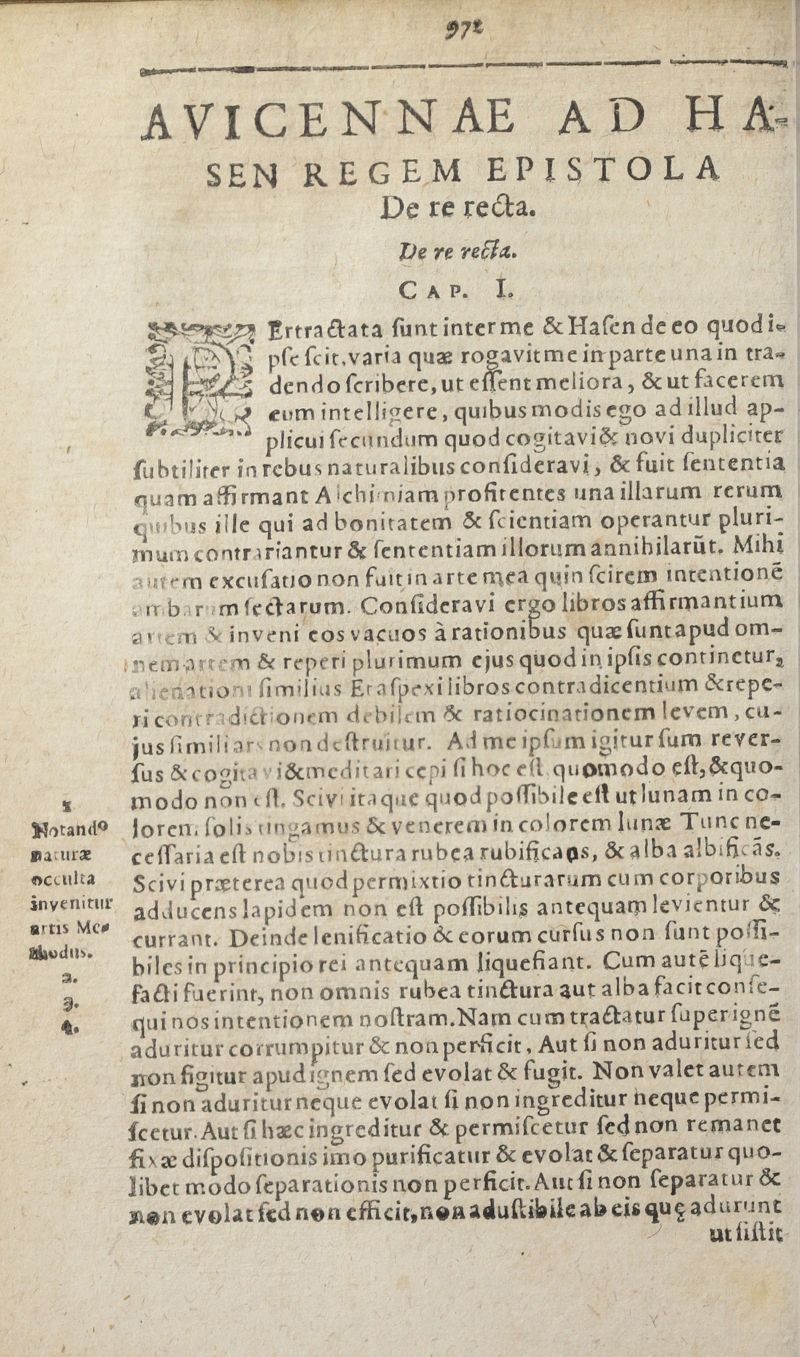 972
AVICENNAE AD HA-
SEN REGEM EPISTOLA
De re recta.
De re recta.
CAP. I.
PErtractata ſunt inter me & Haſen de eo quod i-
pſe ſcit, varia quæ rogavit me in parte una in tra-
dendo ſcribere, ut eſſent meliora, & ut facerem
eum intelligere, quibus modis ego ad illud ap-
plicui ſecundum quod cogitavi & novi dupliciter
ſubtiliter in rebus naturalibus conſideravi, & fuit ſententia
quam affirmant Alchimiam profitentes una illarum rerum
quibus ille qui ad bonitatem & ſcientiam operantur pluri-
mum contrariantur & ſententiam illorum annihilarūt. Mihi
autem excuſatio non fuit in arte mea quin ſcirem intentionē
ambarum ſectarum. Conſideravi ergo libros affirmantium
artem & inveni eos vacuos à rationibus quæ ſunt apud om-
nem artem & reperi plurimum ejus quod in ipſis continetur,
alienationi ſimilius Et aſpexi libros contradicentium & repe-
ri contradictionem debilem & ratiocinationem levem, cu-
jus ſimiliars non deſtruitur. Ad me ipſum igitur ſum rever-
ſus & cogitavi & meditari cepi ſi hoc eſt quomodo eſt, & quo-
modo non eſt. Scivi itaque quod poſſibile eſt ut lunam in co-
lorem ſolis tingamus & venerem in colorem lunæ Tunc ne-
ceſſaria eſt nobis tinctura rubea rubificans, & alba albificās.
Scivi præterea quod permixtio tincturarum cum corporibus
adducens lapidem non eſt poſſibilis antequam levientur &
currant. Deinde lenificatio & eorum curſus non ſunt poſſi-
biles in principio rei antequam liquefiant. Cum autē lique-
facti fuerint, non omnis rubea tinctura aut alba facit conſe-
qui nos intentionem noſtram. Nam cum tractatur ſuper ignē
aduritur corrumpitur & non perficit, Aut ſi non aduritur ſed
non figitur apud ignem ſed evolat & fugit. Non valet autem
ſi non aduritur neque evolat ſi non ingreditur neque permi-
ſcetur. Aut ſi hæc ingreditur & permiſcetur ſed non remanet
fixæ diſpoſitionis imo purificatur & evolat & ſeparatur quo-
libet modo ſeparationis non perficit. Aut ſi non ſeparatur &
non evolat ſed non efficit, non aduſtibile ab eis quę adurunt
ut ſiſtit
1
Notandº
naturæ
occulta
invenitur
artis Me-
thodus.
2.
3.
4.